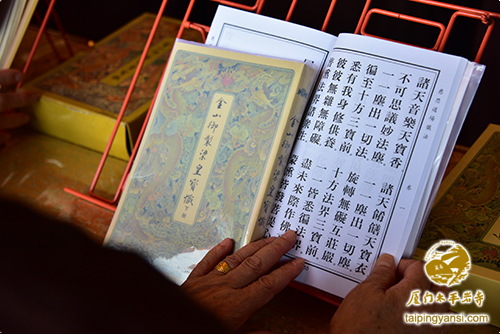 慈悲道場懺法 卷一
諸天音樂天寶香 諸天餚饍天寶衣
不可思議妙法塵 一一塵出一切塵
一一塵出一切法 旋轉無礙互莊嚴
徧至十方三寶前 十方法界三寶前
悉有我身修供養 一一皆悉徧法界
彼彼無雜無障礙 盡未來際作佛
普熏法界諸眾生 蒙熏皆發菩
金山御製梁皇寶懺
廈門太平岩寺
taipingyansi.com